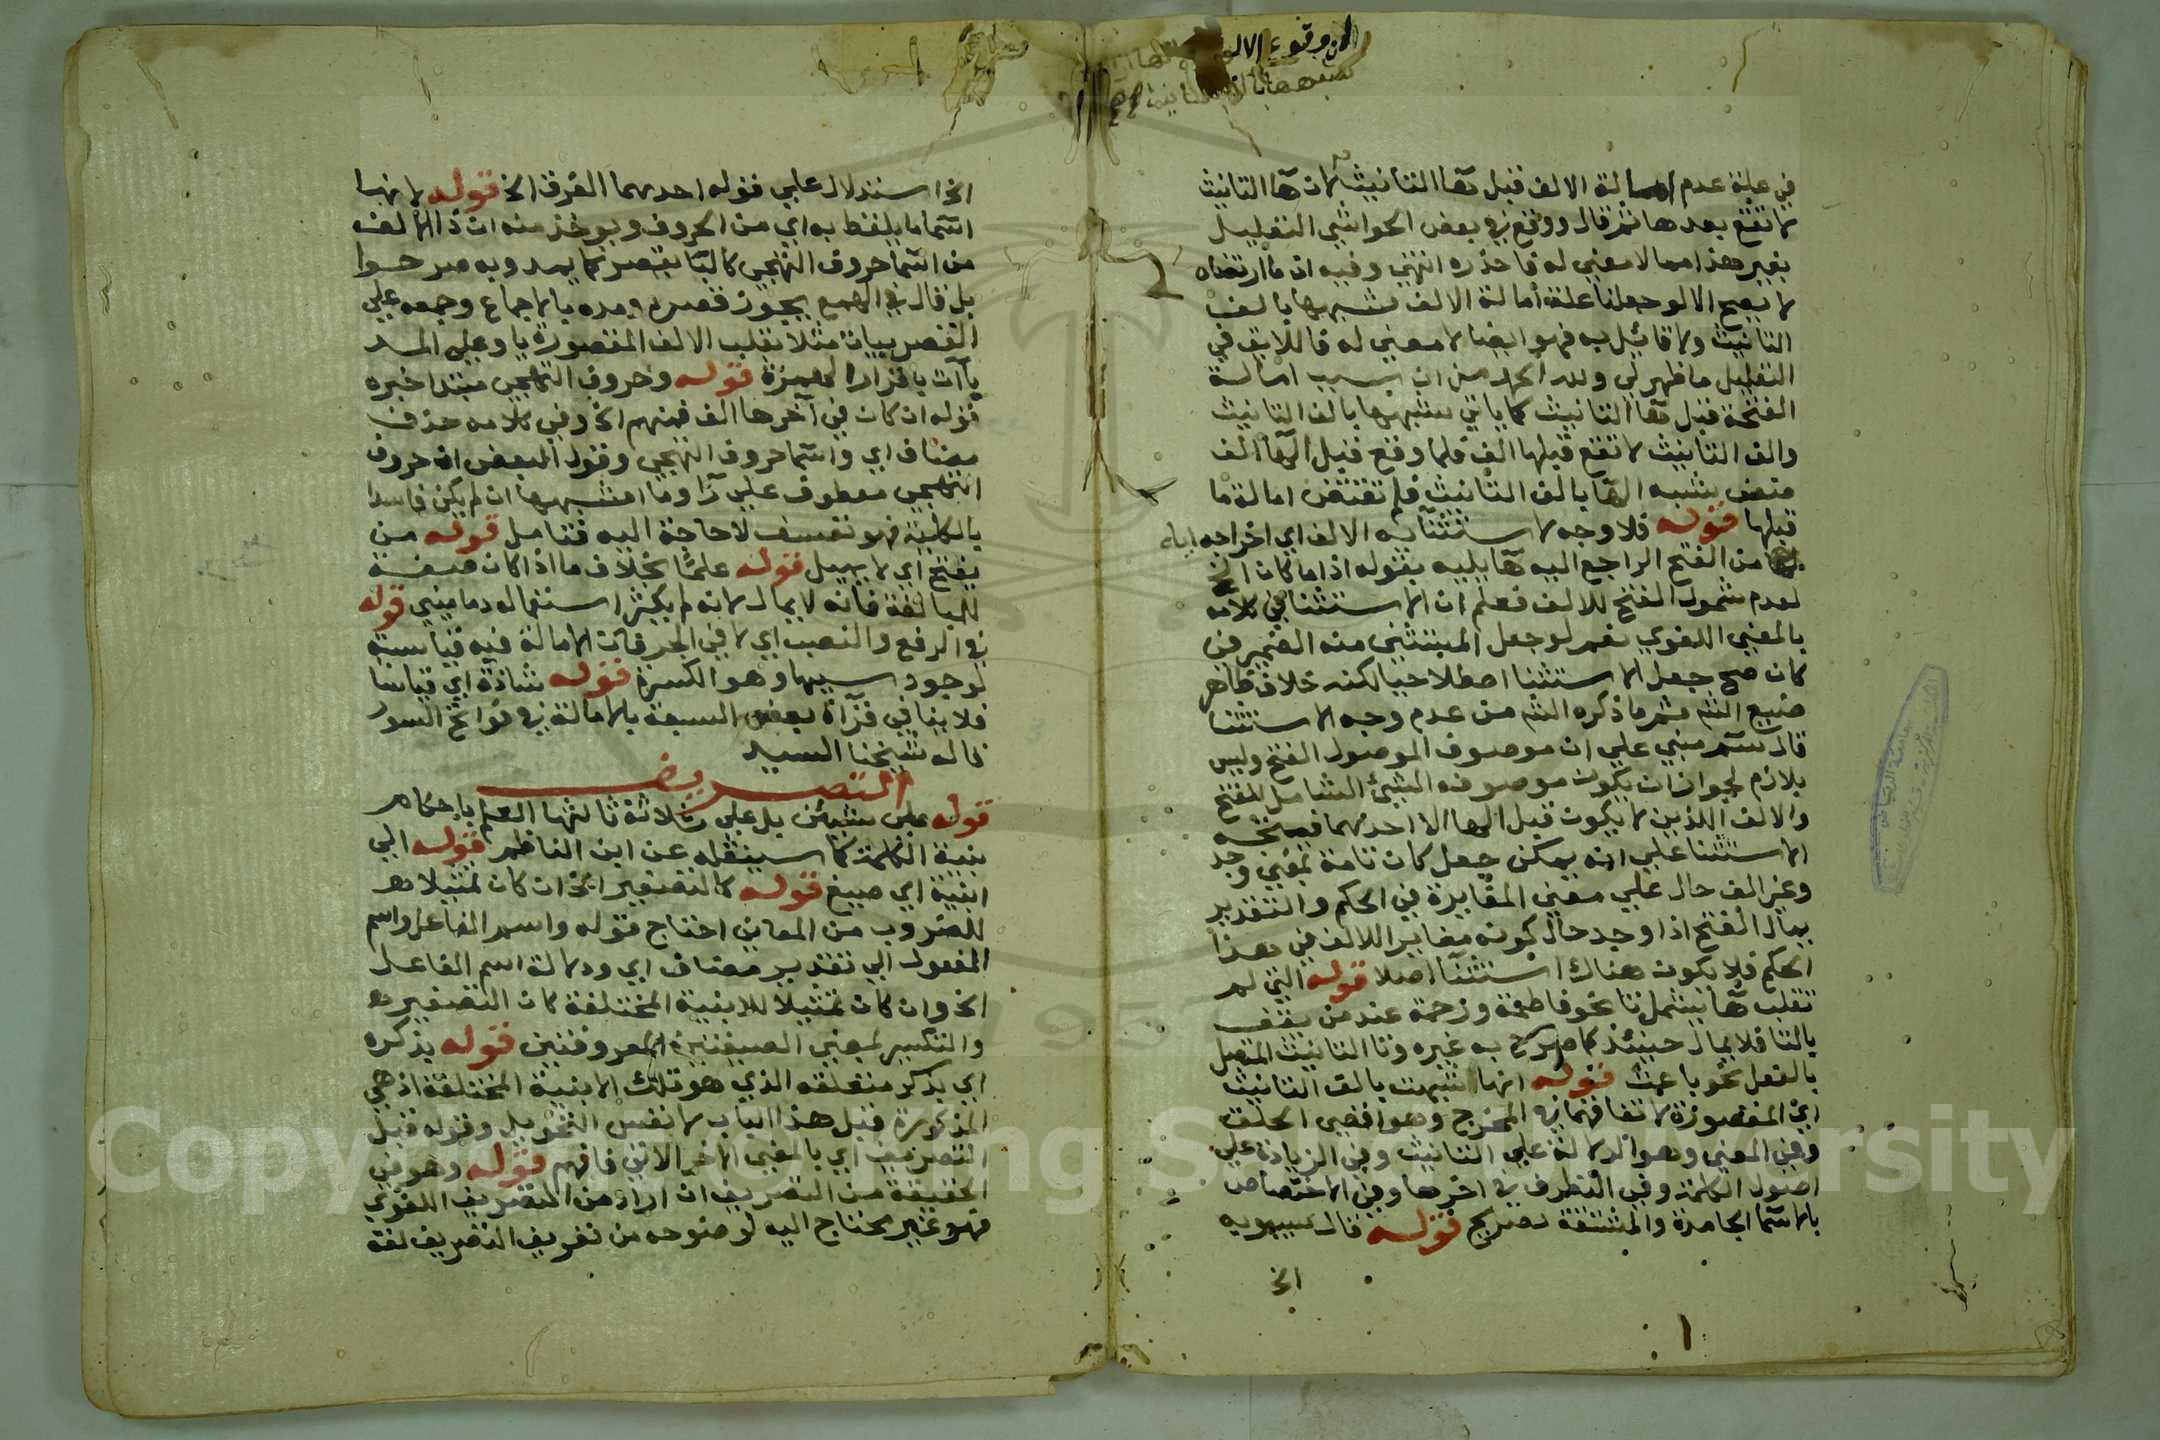 في علة عدم امالة الالف قبل هاء التانيث لان هاء التانيث
لا تقع بعدها ثم قال ووقع في بعض الحواشي التعليل
بغير هذا مما لا معنى له فاحذره انتهى وفيه ان ما ارتضاه
لا يصح الا لو جعلنا علة امالة الالف شبهها بالف
التانيث ولا قائل به فهو ايضا لا معنى له فاللايق في
التعليل ما ظهر لي ولله الحمد من ان سبب امالة
الفتحة قبل هاء التانيث كما ياتي شبهها بالف التانيث
والف التانيث لا تقع قبلها الف فلما وقع قبل الهاء الف
ضعف شبه الهاء بالف التانيث فلم تقتض امالة ما
قبلها قوله فلا وجه لاستثنائه الالف اي اخراجه اياه
من الفتح الراجع اليه هاء يليه بقوله اذا ما كان الخ
لعدم شمول الفتح للالف فعلم ان الاستثنا في كلامه
بالمعنى اللغوي نعم لو جعل المستثنى منه الضمير في
كان صح جعل الاستثنا اصطلاحيا لكنه خلاف ظاهر
صنيع الشم ثم ما ذكره الشم من عدم وجه الاستثنا
قال سم مبني على ان موصوف الموصول الفتح وليس
بلازم لجواز ان يكون موصوفه الشيء الشامل للفتح
والالف اللذين لا يكون قبل الها الا احدهما فصحة
الاستثنا على انه يمكن جعل كان تامة بمعنى وجد
وغير الف حال على معنى المغايرة في الحكم والتقدير
يمال الفتح اذا وجد حال كونه مغايرا للالف في هذا
الحكم فلا يكون هناك استثنا اصلا قوله التي لم
تقلب هاء يشمل تا نحو فاطمة ورحمة عند من يقف
بالتا فلا يمال حينئذ كما صرح به غيره وتا التانيث المتصل
بالفعل نحو باعت قوله انها اشبهت بالف التانيث
اي المقصورة لاتفاقهما في المخرج وهو اقصى الحلق
وفي المعنى وهو الدلالة على التانيث وفي الزيادة على
اصول الكلمة وفي التطرف في اخرها وفي الاختصاص
بالاسما الجامدة والمشتقة تصريح قوله قال سيبويه
الخ
الخ استدلال على قوله احدهما الفرق الخ قوله لانها
اسما ما يلفظ به اي من الحروف ويوخذ منه ان ذا الالف
من اسما حروف التهجي كالبا يقصر كما يمد وبه صرحوا
بل قال في الهمع يجوز قصره ومده بالاجماع وجمعه على
القصر بيات مثلا بقلب الالف المقصورة يا وعلى المد
باآت باقرار الهمزة قوله وحروف التهجي مبتدا خبره
قوله ان كان في آخرها الف فمنهم الخ وفي كلامه حذف
مضاف اي واسما حروف التهجي وقول البعض ان حروف
التهجي معطوف على را وما اشبهها ان لم يكن فاسدا
بالكلية فهو تعسف لا حاجة اليه فتامل قوله من
يفتح اي لا يميل قوله علما بخلاف ما اذا كان صفة
للمبالغة فانه لا يمال لانه لم يكثر استعماله دماميني قوله
في الرفع والنصب اي لا في الجر فان الامالة فيه قياسية
لوجود سببها وهو الكسرة قوله شاذة اي قياسا
فلا ينافي قراة بعض السبعة بالامالة في فواتح السور
قاله شيخنا السيد
التصريف
قوله على شيئين بل على ثلاثة ثالثها العلم باحكام
بنية الكلمة كما سينقله عن ابن الناظم قوله الى
ابنية اي صيغ قوله كالتصغير الخ ان كان تمثيلا
للضروب من المعاني احتاج قوله واسم الفاعل واسم
المفعول الى تقدير مضاف اي ودلالة اسم الفاعل
الخ وان كان تمثيلا للابنية المختلفة كان التصغير
والتكسير بمعنى الصيغتين المعروفتين قوله بذكره
اي بذكر متعلقه الذي هو تلك الابنية المختلفة اذ هي
المذكورة قبل هذا الباب لا نفس التحويل وقوله قبل
التصريف اي بالمعنى الاخر الاتي فافهم قوله وهو في
الحقيقة من التصريف ان اراد من التصريف اللغوي
فهو غير محتاج اليه لوضوحه من تعريف التصريف لغة
Copyright © King Saud University